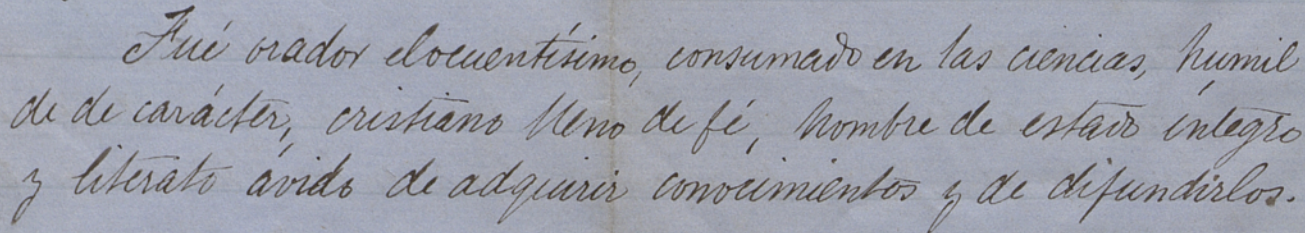 Fué orador elocuentísimo, consumado en las ciencias, humil
de de carácter, cristiano lleno de fé, hombre de estado integro
y literato ávido de adquirir conocimientos y de difundirlos.